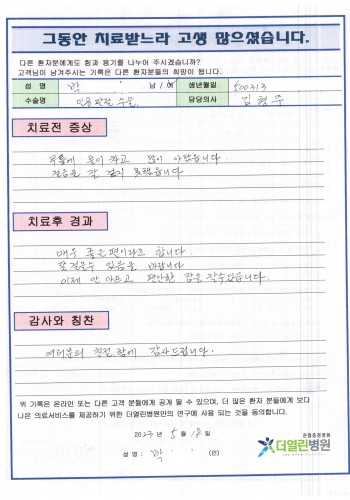 그동안 치료받느라 고생 많으셨습니다.
다른 환자분에게도 힘과 용기를 나누어 주시겠습니까?
고객님이 남겨주시는 기록은 다른 환자분들의 희망이 됩니다.
성 명 박 남/여 생년월일 500313
수술명 인공관절 수술 담당의사 김형주
치료전 증상
무릎에 물이 차고 많이 아팠습니다.
걸음을 잘 걷지 못했습니다
치료후 경과
매우 좋은편이라고 합니다.
잘 걸을수 있음을 바랍니다
이제 안 아프고 편안한 잠을 잘수있습니다.
감사와 칭찬
여러분의 친절함에 감사드립니다.
위 기록은 온라인 또는 다른 고객 분들에게 공개 될 수 있으며, 더 많은 환자 분들에게 보다
나은 의료서비스를 제공하기 위한 더열린병원만의 연구에 사용 되는 것을 동의합니다.
2023년 5월 18일
성 명 : 박 (인)
관절중점병원
더열린병원